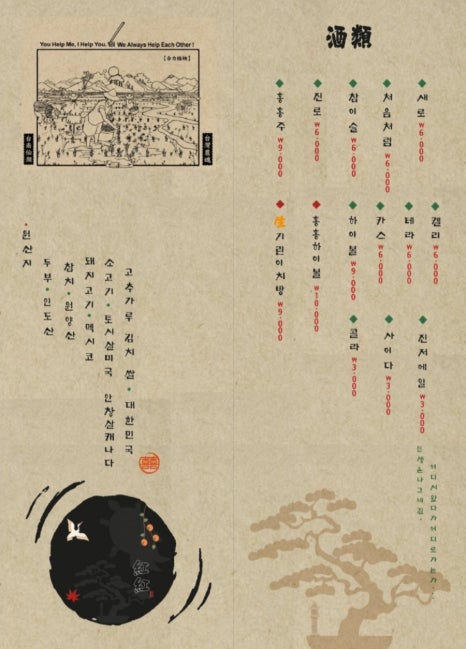 You Help Me, I Help You, We Always Help Each Other!
酒類
새로 ₩6·000
처음처럼 ₩6·000
참이슬 ₩6·000
진로 ₩6·000
홍홍주 ₩9·000
켈리 ₩6·000
테라 ₩6·000
카스 ₩6·000
하이볼 ₩9·000
홍홍하이볼 ₩10·000
生기린이치방 ₩9·000
진저에일 ₩3·000
사이다 ₩3·000
콜라 ₩3·000
원산지
고추가루 김치 쌀 · 대한민국
소고기 · 토시살미국 안창살캐나다
돼지고기 · 멕시코
참치 · 원양산
두부 · 인도산
紅紅